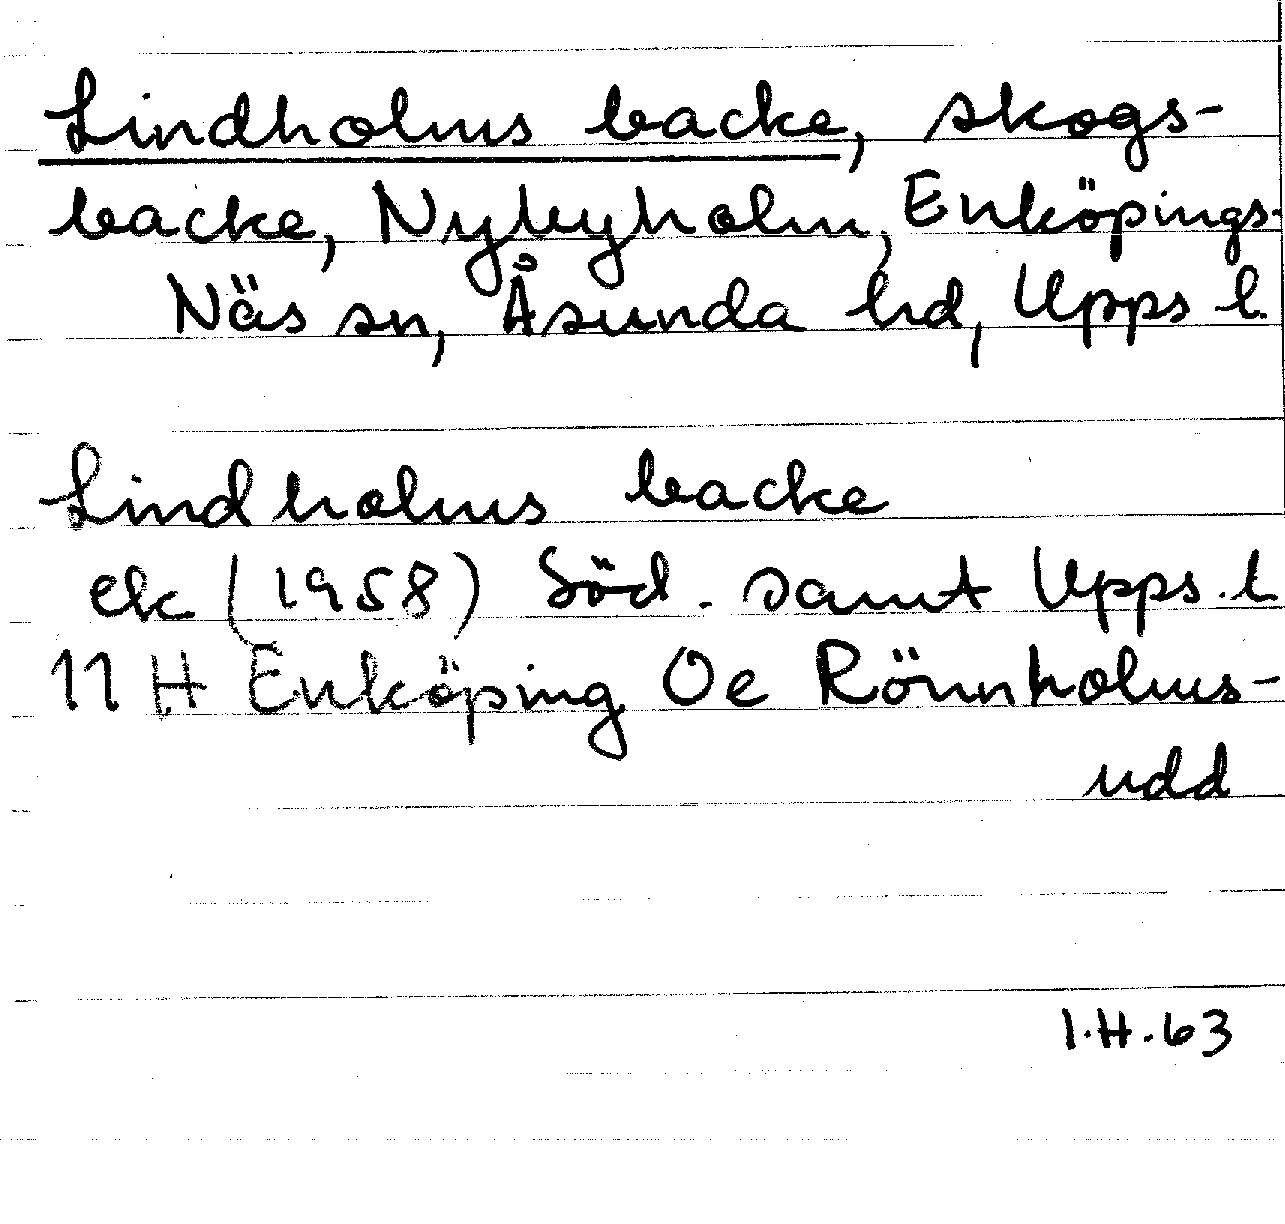 Lindholms backe, skogs-
backe, Nybyholm, Enköpings-
Näs sn, Åsunda hd, Upps l.
Lindholms backe
ek (1958) Söd. samt Upps. l.
11 H Enköping Oe Rönnholms-
udd
I.H.63